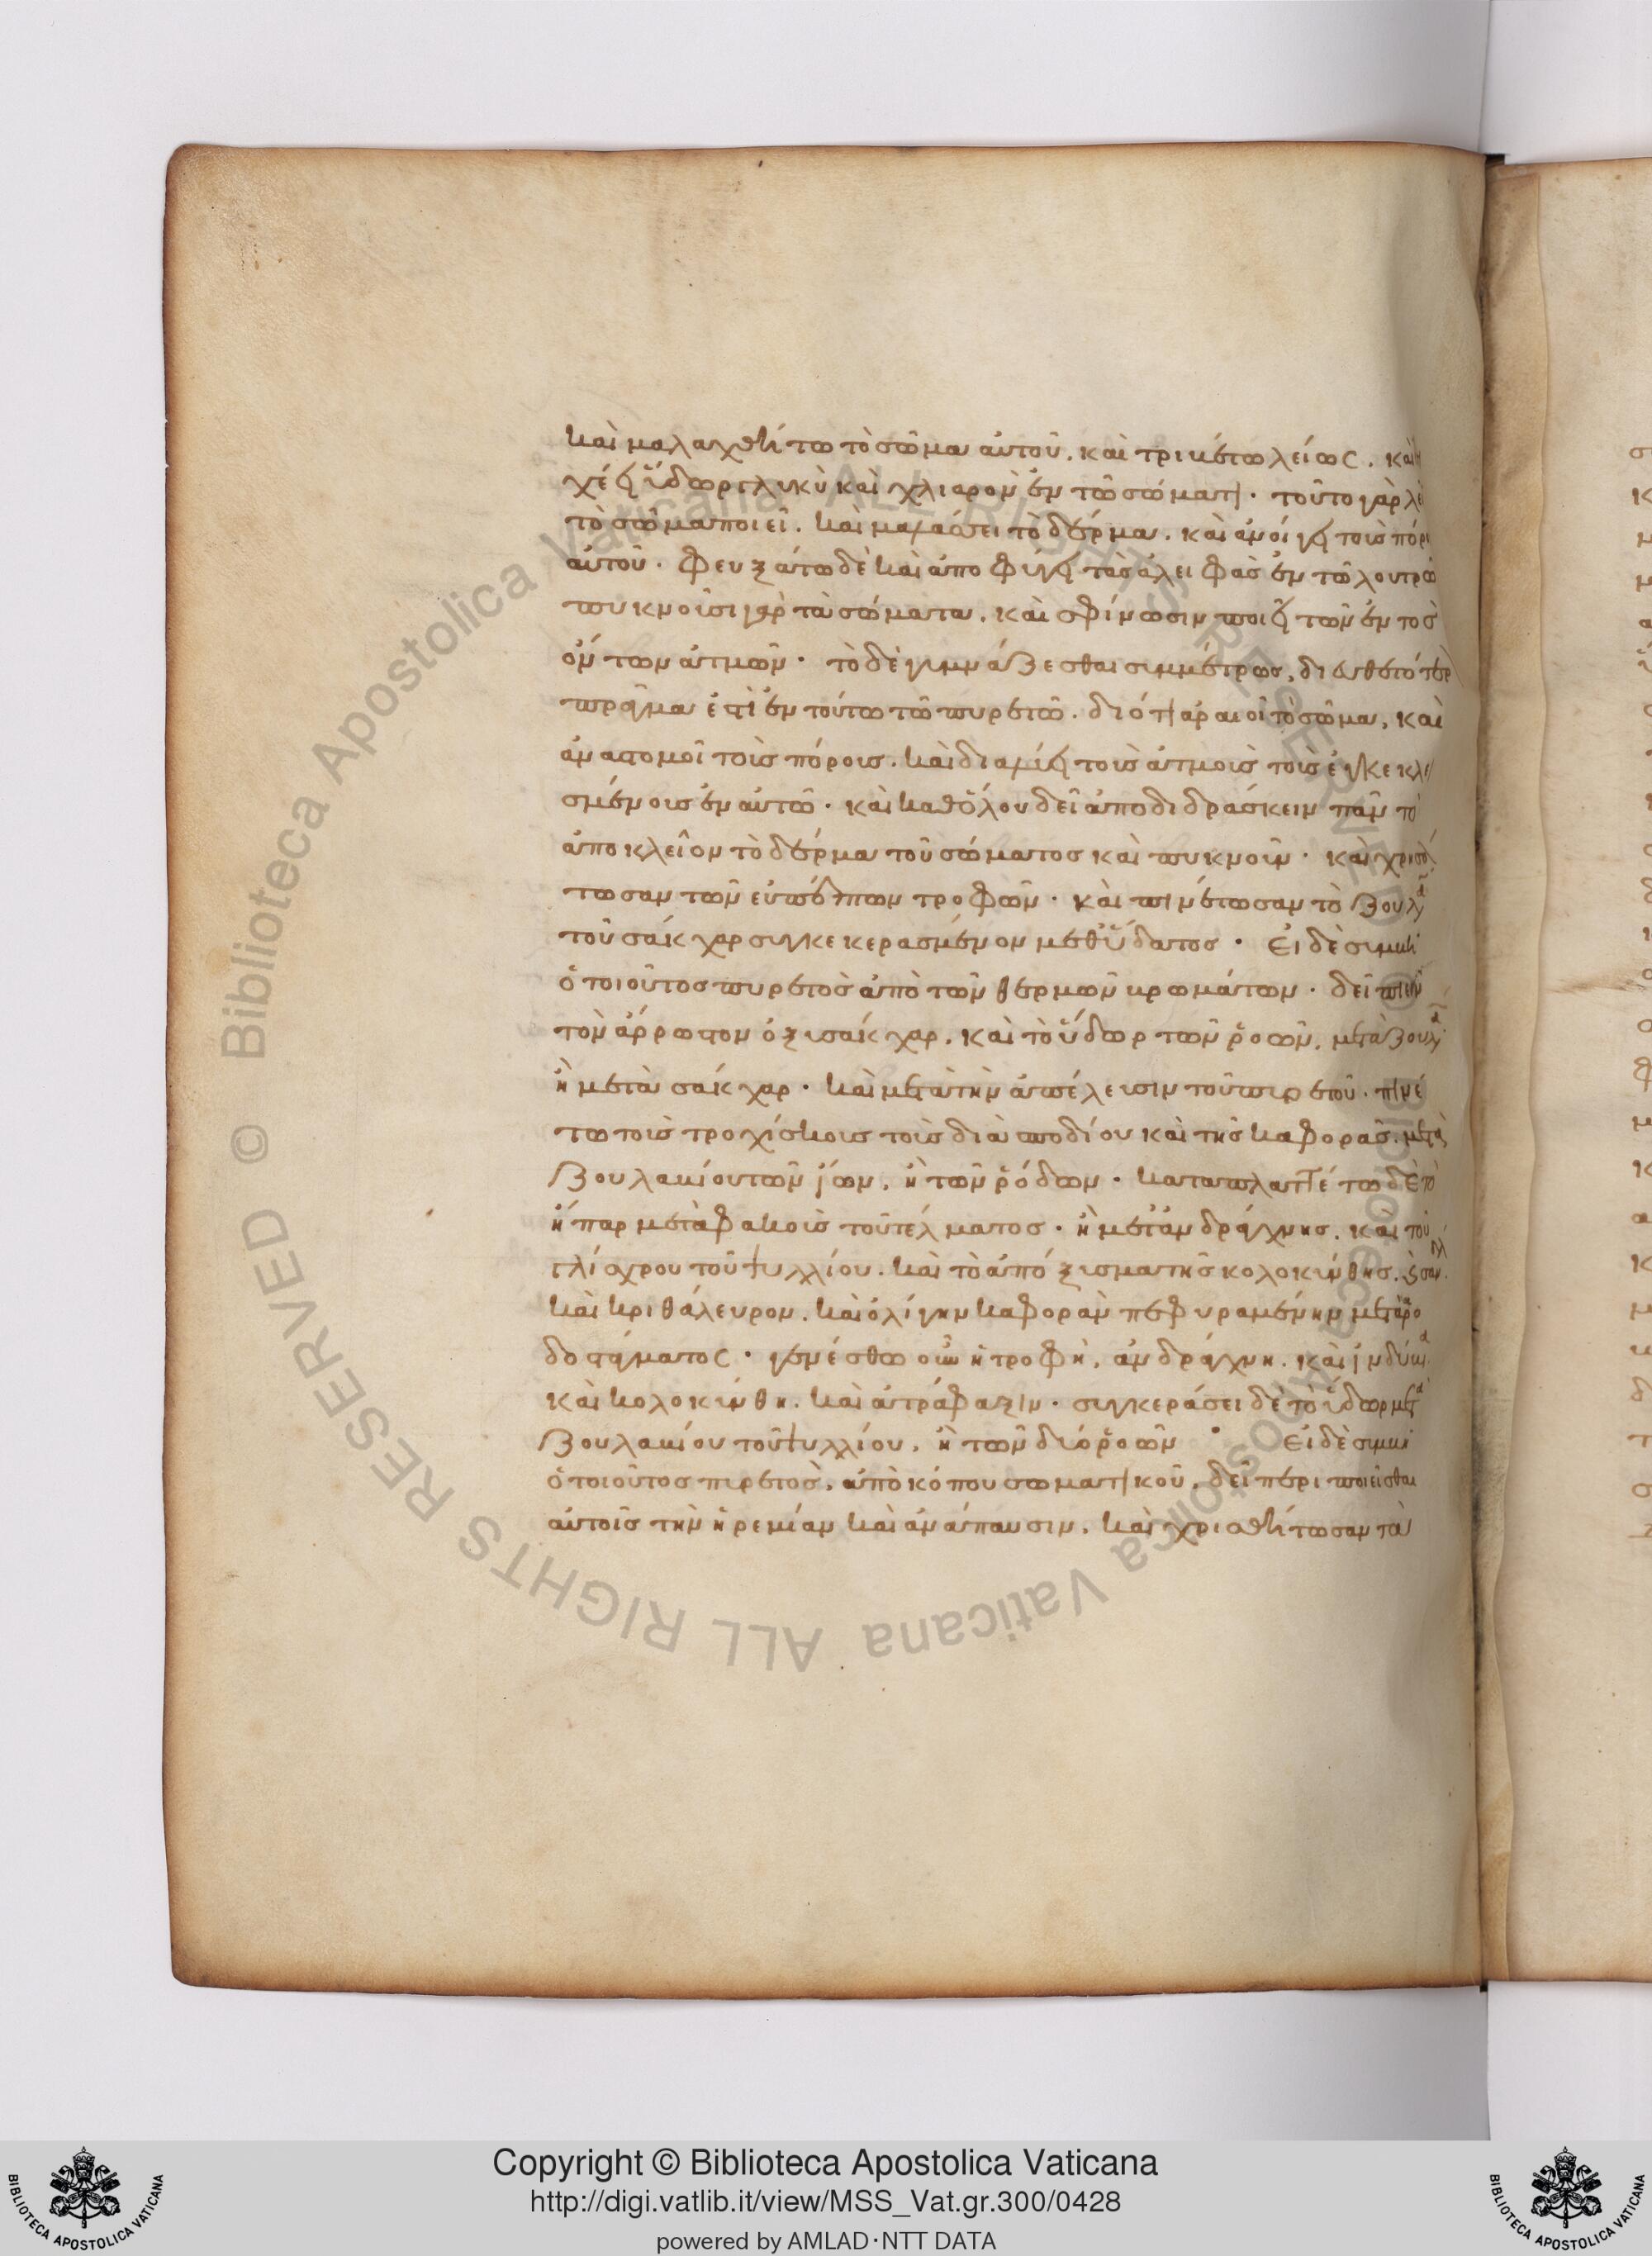 καὶ μαλαχθήτω τὸ σῶμα αὐτοῦ. καὶ τριβέτω λείως. καὶ
χέειν ὕδωρ γλυκὺ καὶ χλιαρὸν ἐν τῶ σώματι. τοῦτο γὰρ
τὸ σῶμα ποιεῖ. καὶ μαλάσσει τὸ δέρμα. καὶ ἀνοίγει τοὺς πόρους
αὐτοῦ. φευξάτω δὲ καὶ ἀποφύγει τὰς ἀλειφὰς ἐν τῶ λουτρῶ
πυκνοῦσι γὰρ τὰ σώματα. καὶ σφίνωσιν ποιεῖ τῶν ἐντὸς
ὄντων ἀτμῶν. τὸ δὲ γυμνάζεσθαι συμμέτρως,
πρᾶγμα ἐστὶ ἐν τούτω τῶ πυρετῶ. διότι ἀραιοῖ τὸ σῶμα, καὶ
ἀναστομοῖ τοὺς πόρους. καὶ διαλύει τοὺς ἀτμοὺς τοὺς ἐγκεκλι
σμένους ἐν αὐτῶ. καὶ καθόλου δεῖ ἀποδιδράσκειν πᾶν τὸ
ἀποκλεῖον τὸ δέρμα τοῦ σώματος καὶ πυκνοῦν. καὶ χρισθή
τωσαν τῶν εὐπέπτων τροφῶν. καὶ πινέτωσαν τὸ ζουλά
τοῦ σάκχαρ συγκεκερασμένον μεθ' ὕδατος. Εἰ δὲ συμβῆ
ὁ τοιοῦτος πυρετὸς ἀπὸ τῶν θερμῶν βρωμάτων. δεῖ πιεῖν
τὸν ἄρρωστον ὀξυσάκχαρ. καὶ τὸ ὕδωρ τῶν ῥοῶν. μετὰ ζουλά
ἢ μετὰ σάκχαρ. καὶ μετὰ τὴν ἀπέλευσιν τοῦ πυρετοῦ. πινέ
τω τοὺς τροχίσκους τοὺς διὰ σποδίου καὶ τῆς καφορᾶς. μετὰ
ζουλακίου τῶν ἴων. ἢ τῶν ῥόδων. καταπλαττέτω δὲ τὸ
ἧπαρ μετὰ φακοῦς τοῦ τέλματος. ἢ μετ' ἀνδράχνης. καὶ τοῦ
γλίσχρου τοῦ ψυλλίου. καὶ τὸ ἀπόξυσμα τῆς κολοκύνθης.
καὶ κριθάλευρον. καὶ ὀλίγην καφορὰν πεφυραμένην μετὰ ῥο
δοστάγματος. γενέσθω οὖν ἡ τροφὴ, ἀνδράχνη. καὶ ἰνδύβια
καὶ κολοκύνθη. καὶ ἀτράφαξιν. συγκεράσει δὲ τὸ ὕδωρ μετὰ
ζουλακίου τοῦ ψυλλίου. ἢ τῶν δύο ῥοῶν. Εἰ δὲ συμβῆ
ὁ τοιοῦτος πυρετὸς, ἀπὸ κόπου σωματικοῦ, δεῖ περιποιεῖσθαι
αὐτοῖς τὴν ἠρεμίαν καὶ ἀνάπαυσιν. καὶ χρισθήτωσαν τὰ
Biblioteca Apostolica Vaticana ALL RIGHTS RESERVED ©
Copyright © Biblioteca Apostolica Vaticana
http://digi.vatlib.it/view/MSS_Vat.gr.300/0428
powered by AMLAD·NTT DATA
BIBLIOTECA APOSTOLICA VATICANA
BIBLIOTECA APOSTOLICA VATICANA